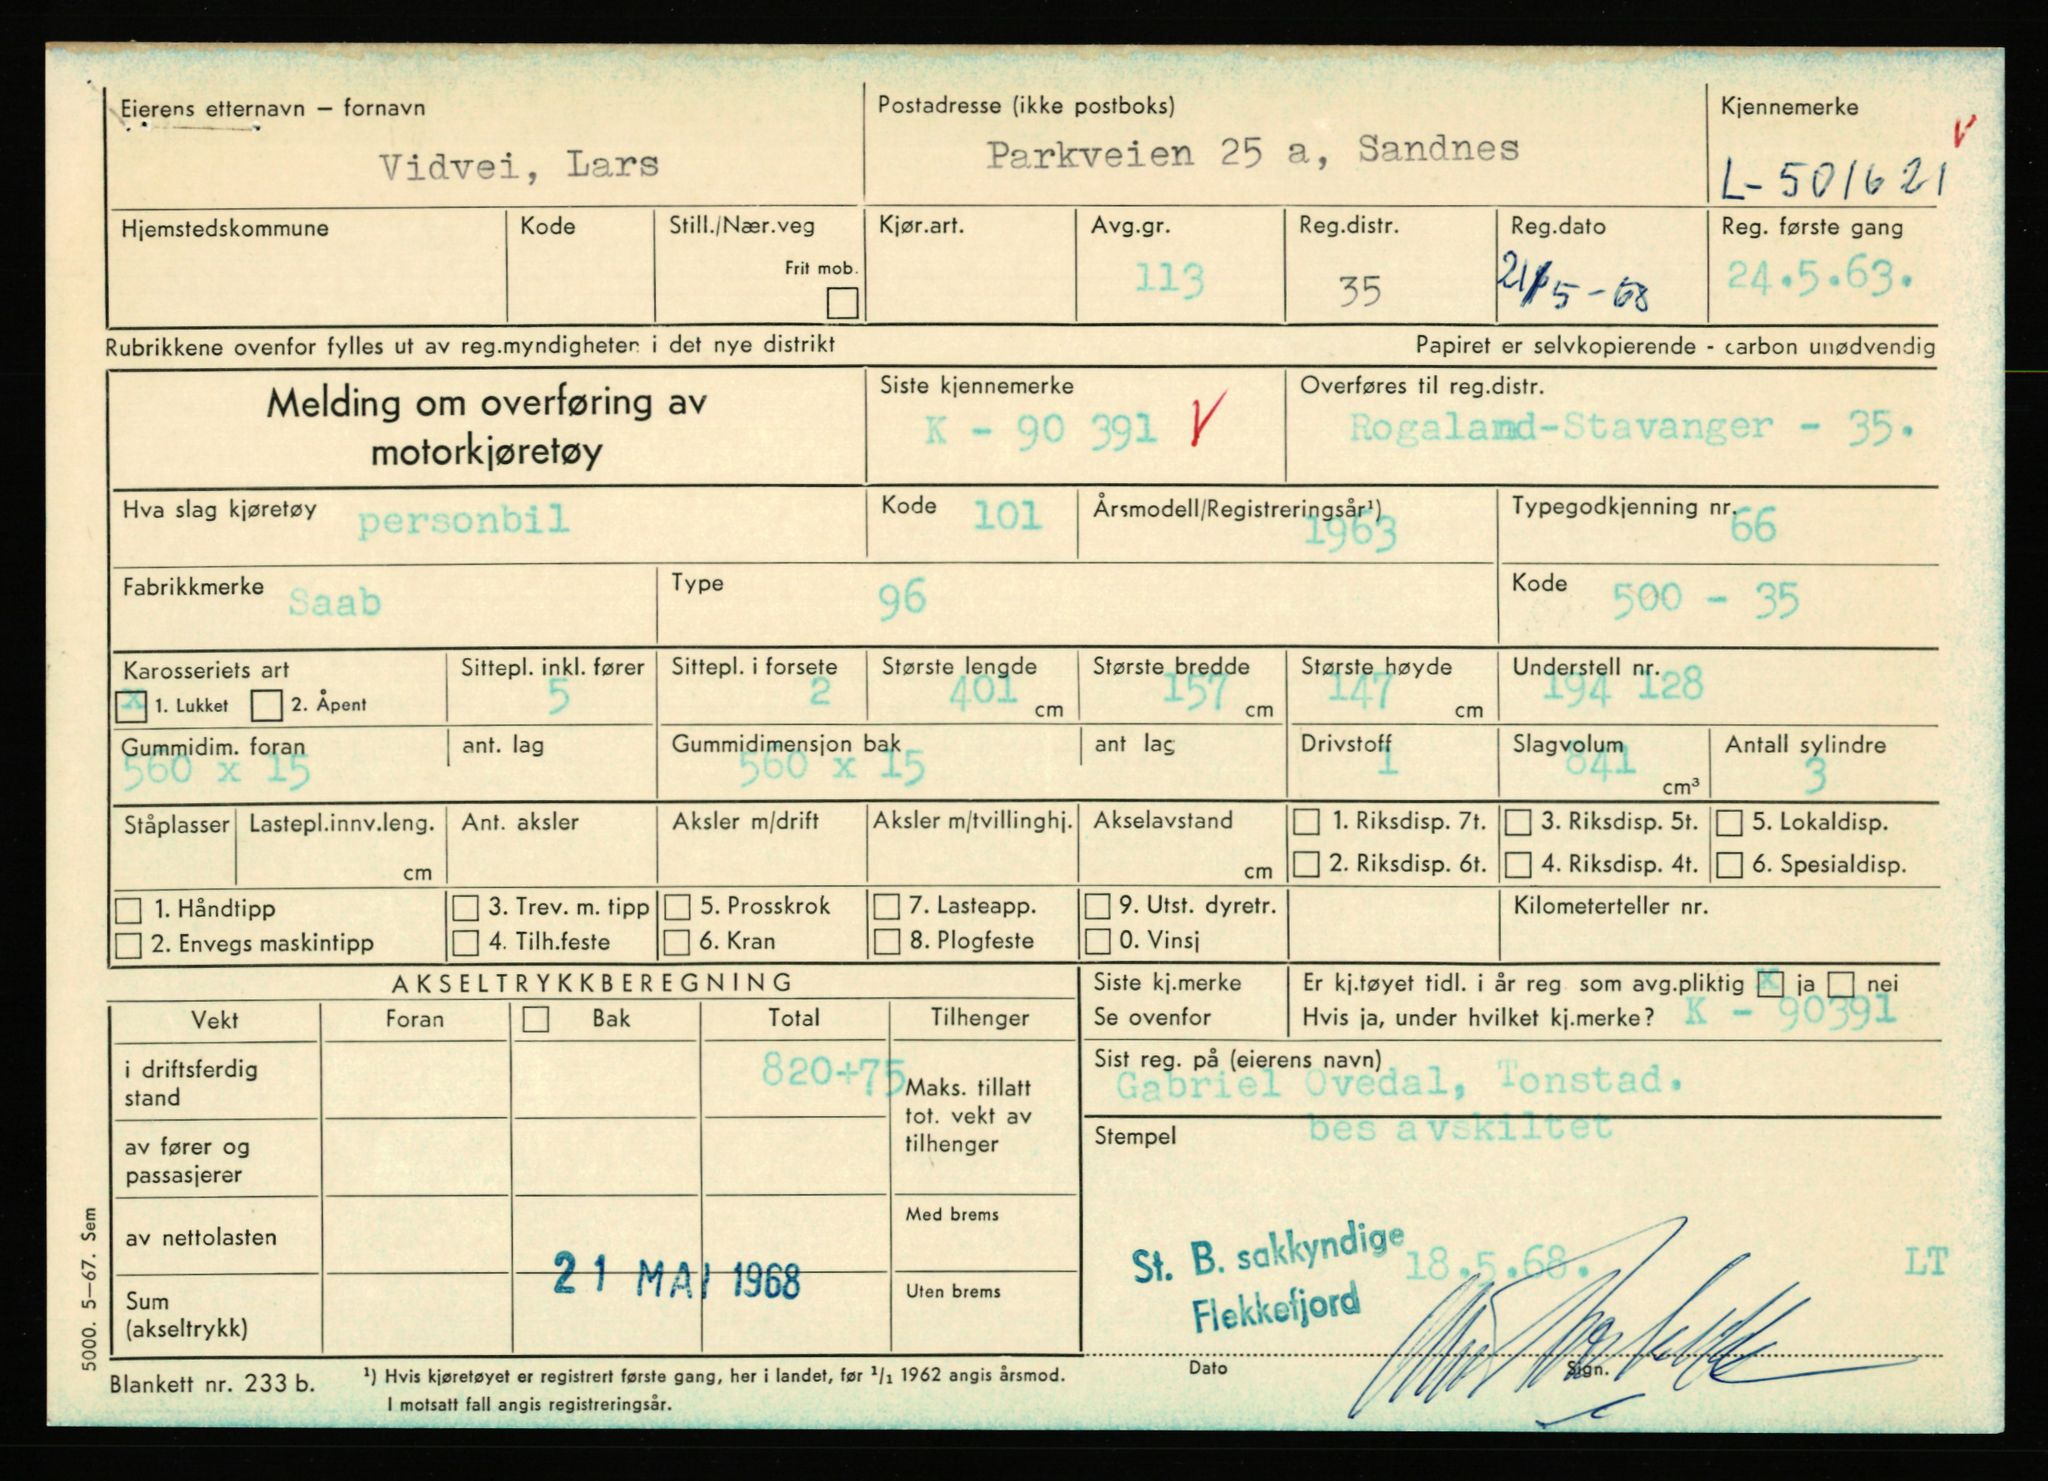 Eierens etternavn – fornavn
Vidvei, Lars
Postadresse (ikke postboks)
Parkveien 25 a, Sandnes
Kjennemerke
V
L- 501621
Hjemstedskommune
Kode
Still./Nær.veg
Frit mob.
Kjør.art.
Avg.gr.
113
Reg.distr.
35
Reg.dato
21/5-68
Reg. første gang
24.5.63.
Rubrikkene ovenfor fylles ut av reg.myndigheten i det nye distrikt
Papiret er selvkopierende - carbon unødvendig
Melding om overføring av
motorkjøretøy
Siste kjennemerke
K - 90 391 V
Overføres til reg.distr.
Rogaland-Stavanger - 35.
Hva slag kjøretøy personbil
Kode 101
Årsmodell/Registreringsår¹)
1963
Typegodkjenning nr.
66
Fabrikkmerke Saab
Type 96
Kode 500 - 35
Karosseriets art
x 1. Lukket 2. Åpent
Sittepl. inkl. fører
5
Sittepl. i forsete
2
Største lengde
401
cm
Største bredde
157
cm
Største høyde
147
cm
Understell nr.
194 128
Gummidim. foran
560 x 15
ant. lag
Gummidimensjon bak
560 x 15
ant lag
Drivstoff
1
Slagvolum
841
cm³
Antall sylindre
3
Ståplasser
Lastepl.innv.leng.
cm
Ant. aksler
Aksler m/drift
Aksler m/tvillinghj.
Akselavstand
cm
1. Riksdisp. 7t.
2. Riksdisp. 6t.
3. Riksdisp. 5t.
4. Riksdisp. 4t.
5. Lokaldisp.
6. Spesialdisp.
1. Håndtipp
2. Envegs maskintipp
3. Trev. m. tipp
4. Tilh.feste
5. Prosskrok
6. Kran
7. Lasteapp.
8. Plogfeste
9. Utst. dyretr.
0. Vinsj
Kilometerteller nr.
AKSELTRYKKBEREGNING
Vekt
Foran
Bak
Total
Tilhenger
i driftsferdig
stand
820+75
Maks. tillatt
tot. vekt av
tilhenger
av fører og
passasjerer
av nettolasten
Med brems
Sum
(akseltrykk)
Uten brems
21 MAI 1968
Siste kj.merke
Se ovenfor
Er kj.tøyet tidl. i år reg som avg.pliktig x ja nei
Hvis ja, under hvilket kj.merke? K - 90391
Sist reg. på (eierens navn)
Gabriel Ovedal, Tonstad.
bes avskiltet
Stempel
St. B. sakkyndige
Flekkefjord
18.5.68.
LT
Dato
Sign.
5000. 5–67. Sem
Blankett nr. 233 b.
¹) Hvis kjøretøyet er registrert første gang, her i landet, før 1/1 1962 angis årsmod.
I motsatt fall angis registreringsår.